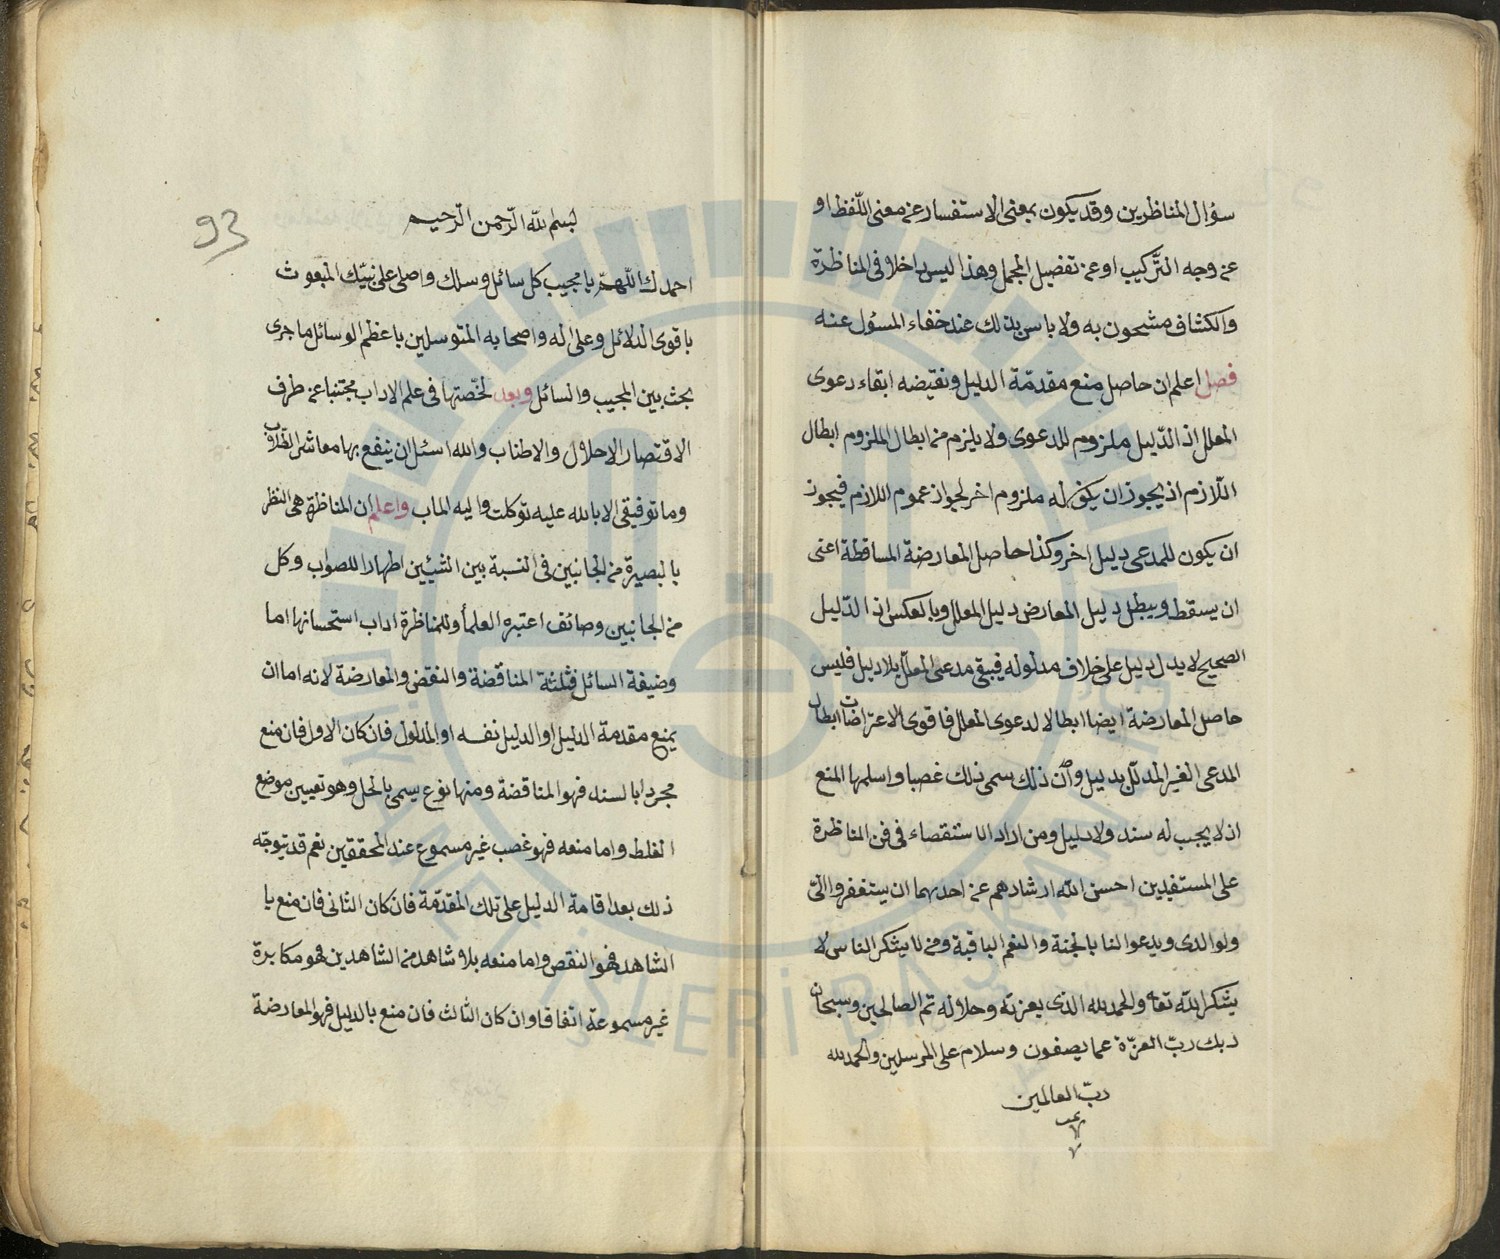 سؤال المناظرين وقد يكون بمعنى الاستفسار عن معنى اللّفظ او
عن وجه التّركيب او عن تفصيل المجمل وهذا ليس داخلا فى المناظرة
والكشاف مشحون به ولا باس بذلك عند خفاء المسؤل عنه
فصل اعلم ان حاصل منع مقدمّة الدليل ونقيضه ابقاء دعوى
المعلل اذ الدّليل ملزوم للدعوى ولا يلزم من ابطال الملزوم ابطال
اللّازم اذ يجوز ان يكون له ملزوم اخر لجواز عموم اللازم فيجوز
ان يكون للمدعى دليل اخر وكذا حاصل المعارضة المساقطة اعنى
ان يسقط ويبطل دليل المعارض دليل المعلل وبالعكس اذ الدّليل
الصحيح لا يدل دليل على خلاف مدلوله فيبقى مدعى المعلّل بلا دليل فليس
حاصل المعارضة ايضا ابطالا لدعوى المعلل فاقوى الاعتراضات ابطال
المدعى الغير المدلّل بدليل وان ذلك سمى ذلك غصبا واسلمها المنع
اذ لا يجب له سند ولا دليل ومن اراد الاستقصاء فى فن المناظرة
على المستفيدين احسن اللّه ارشادهم عن احدهما ان يستغفروا الىّ
ولوالدى ويدعوا لنا بالجنة والنعم الباقية ومن لا يشكر الناس لا
يشكر اللّه تعالى والحمد لله الذى بعزته وجلاله تم الصالحين وسبحان
ربك ربّ العزّة عما يصفون وسلام على المرسلين والحمد لله
ربّ العالمين
93
بسم اللّه الرّحمن الرّحيم
احمدك اللّهمّ يا مجيب كل سائل وسلك واصلى على نبيّك المبعوث
باقوى الدلائل وعلى اله واصحابه المتوسلين باعظم الوسائل ما جرى
بحث بين المجيب والسائل وبعد لخّصتها فى علم الاداب مجتنبا عن طرف
الاقتصار الاخلال والاطناب والله اسئل ان ينفع بها معاشر الطلاب
وما توفيقى الا بالله عليه توكلت واليه الماب واعلم ان المناظرة هى النظر
بالبصيرة من الجانبين فى النسبة بين الشيئين اظهارا للصواب وكل
من الجانبين وصائف اعتبره العلماء وللمناظرة اداب استحسانها اما
وضيفة السائل فثلثة المناقضة والنقض والمعارضة لانه اما ان
يمنع مقدمة الدليل او الدليل نفسه او المدلول فان كان الاول فان منع
مجردا بالسند فهو المناقضة ومنها نوع يسمى بالحل وهو تعيين موضع
الغلط واما منعه فهو غصب غير مسموع عند المحققين نعم قد يتوجّه
ذلك بعد اقامة الدليل على تلك المقدّمة فان كان الثانى فان منع با
الشاهد فهو النقص واما منعه بلا شاهد من الشاهدين فهو مكابرة
غير مسموعة اتفاقا وان كان الثالث فان منع بالدليل فهو المعارضة